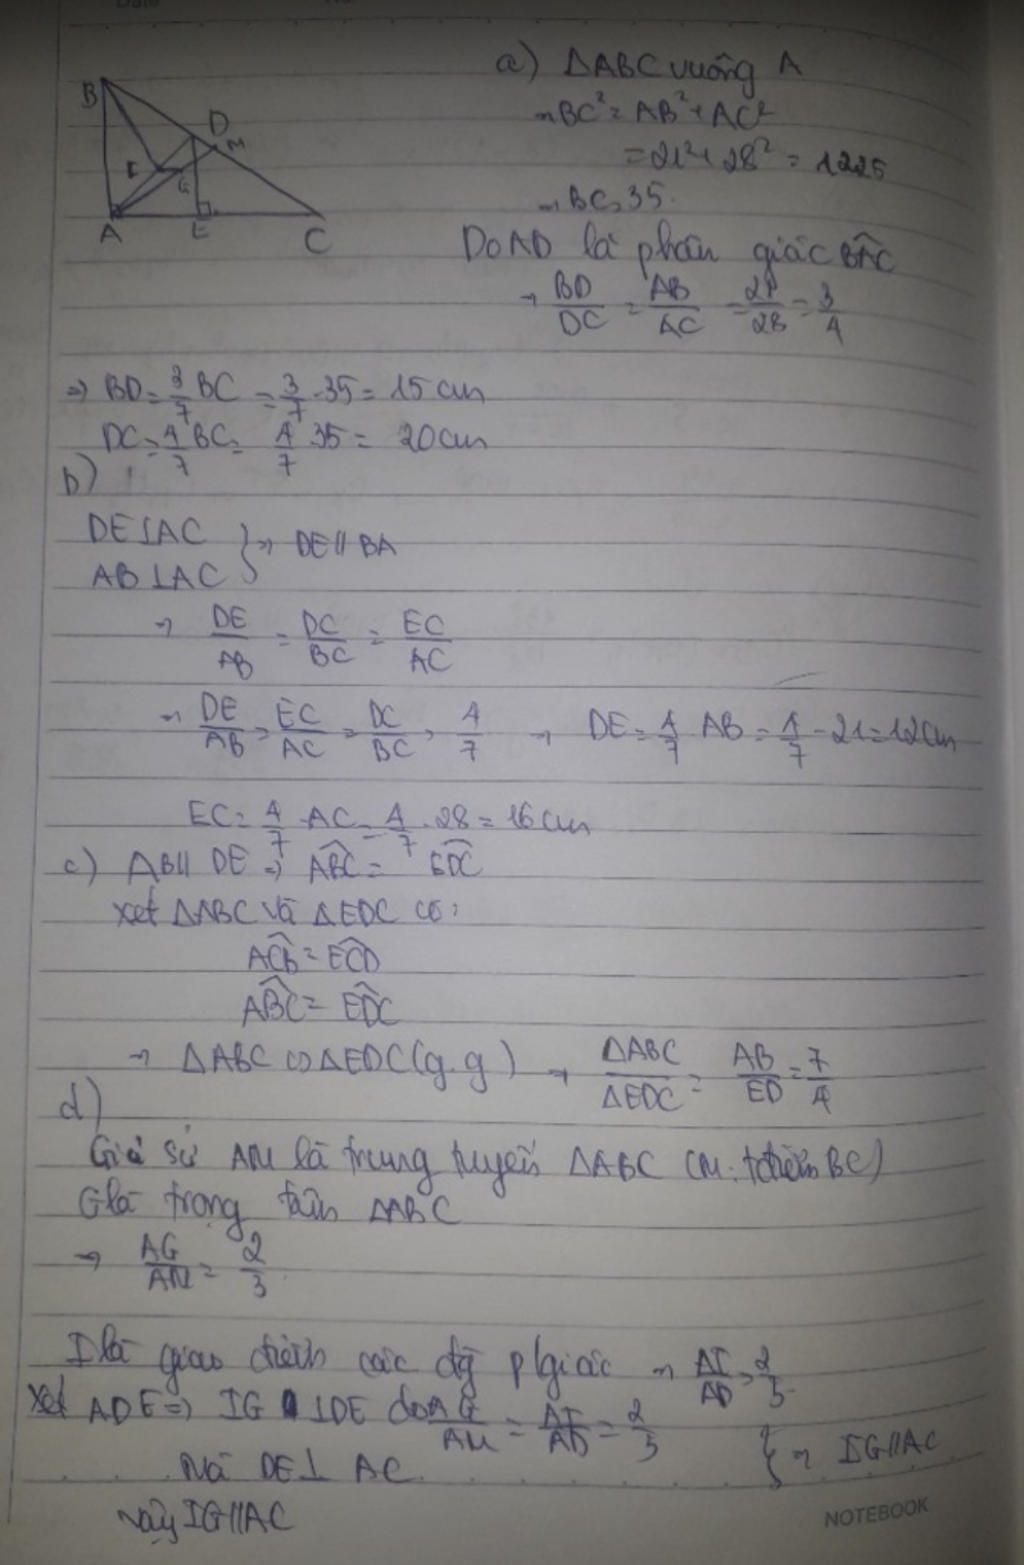 a) ΔABC vuông A
B
D
M
I
G
A
E
C
→ BC² = AB² + AC²
= 21² + 28² = 1225
→ BC = 35.
Do AD là phân giác BAC
→ BD/DC = AB/AC = 21/28 = 3/4
⇒ BD = 3/7 BC = 3/7 . 35 = 15 cm
DC = 4/7 BC = 4/7 35 = 20cm
b)
DE ⊥ AC
AB ⊥ AC } → DE // BA
→ DE/AB = DC/BC = EC/AC
→ DE/AB = EC/AC = DC/BC = 4/7 → DE = 4/7 AB = 4/7 . 21 = 12cm
EC = 4/7 . AC = 4/7 . 28 = 16 cm
c) AB // DE → ABC = EDC
xét ΔABC và ΔEDC có:
ACB = ECD
ABC = EDC
→ ΔABC ∽ ΔEDC (g.g) → ΔABC/ΔEDC = AB/ED = 7/4
d)
Giả sử AM là trung tuyến ΔABC (M: t điểm BC)
G là trọng tâm ΔABC
→ AG/AM = 2/3
I là giao điểm các đg p/giác → AI/AD = 2/3
Xét ADE ⇒ IG ⊥ DE do AG/AM = AI/AD = 2/3
Mà DE ⊥ AC } → IG // AC
Vậy IG // AC
NOTEBOOK